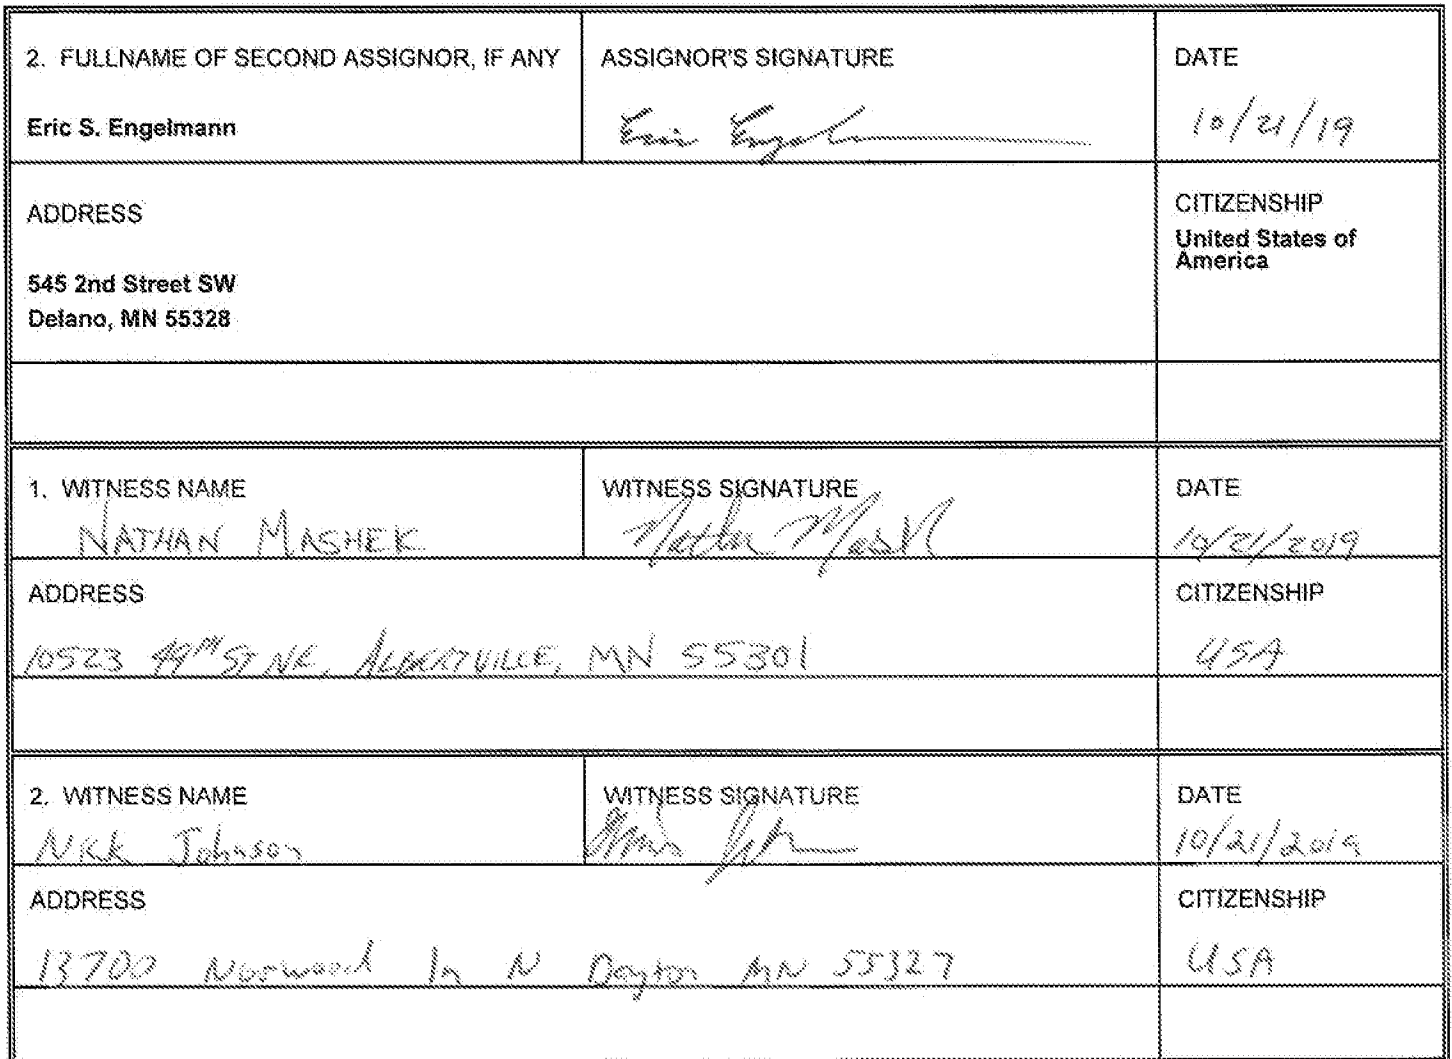 2. FULLNAME OF SECOND ASSIGNOR, IF ANY
Eric S. Engelmann
ASSIGNOR'S SIGNATURE
Eric Engel
DATE
10/21/19
ADDRESS
545 2nd Street SW
Delano, MN 55328
CITIZENSHIP
United States of
America
1. WITNESS NAME
NATHAN MASHEK
WITNESS SIGNATURE
Nathan Mashek
DATE
10/21/2019
ADDRESS
10523 49TH ST NE, ALBERTVILLE, MN 55301
CITIZENSHIP
USA
2. WITNESS NAME
Nick Johnson
WITNESS SIGNATURE
DATE
10/21/2019
ADDRESS
13700 Norwood ln N Dayton MN 55327
CITIZENSHIP
USA